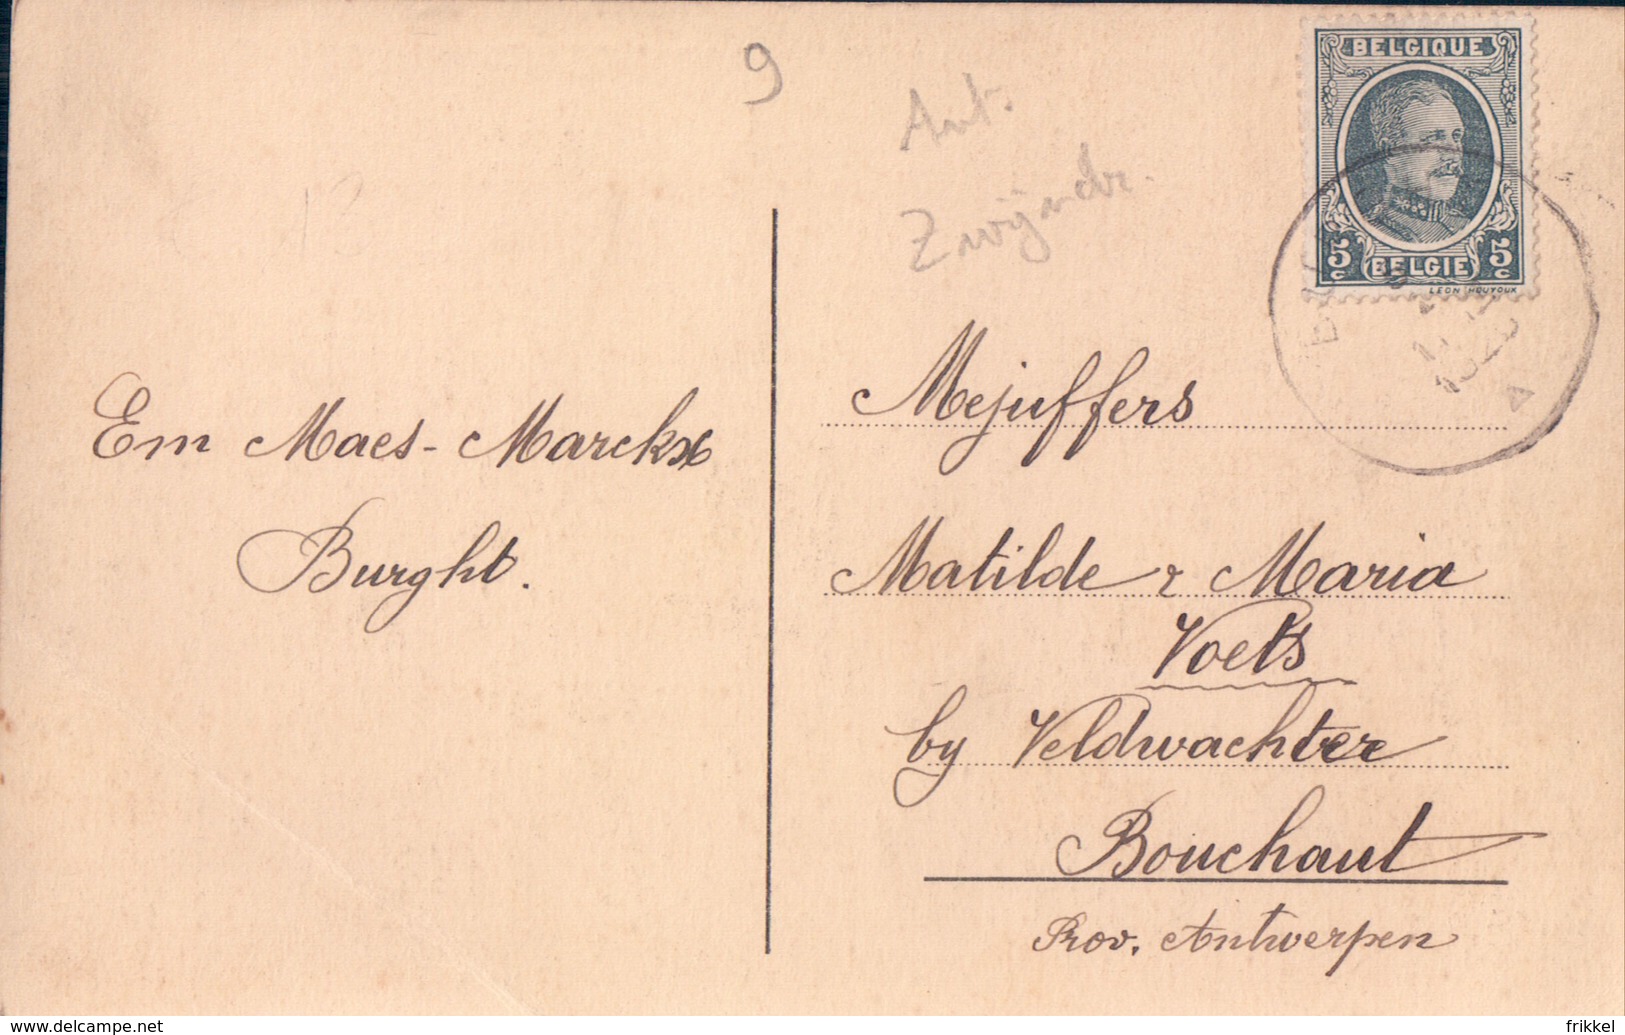 9
Ant.
Zwijndr.
BELGIQUE
5c BELGIE 5c
LEON HOUYOUX
Em Maes-Marckx
Burght.
Mejuffers
Matilde & Maria
Voets
by Veldwachter
Bouchaut
Prov. Antwerpen
www.delcampe.net
frikkel